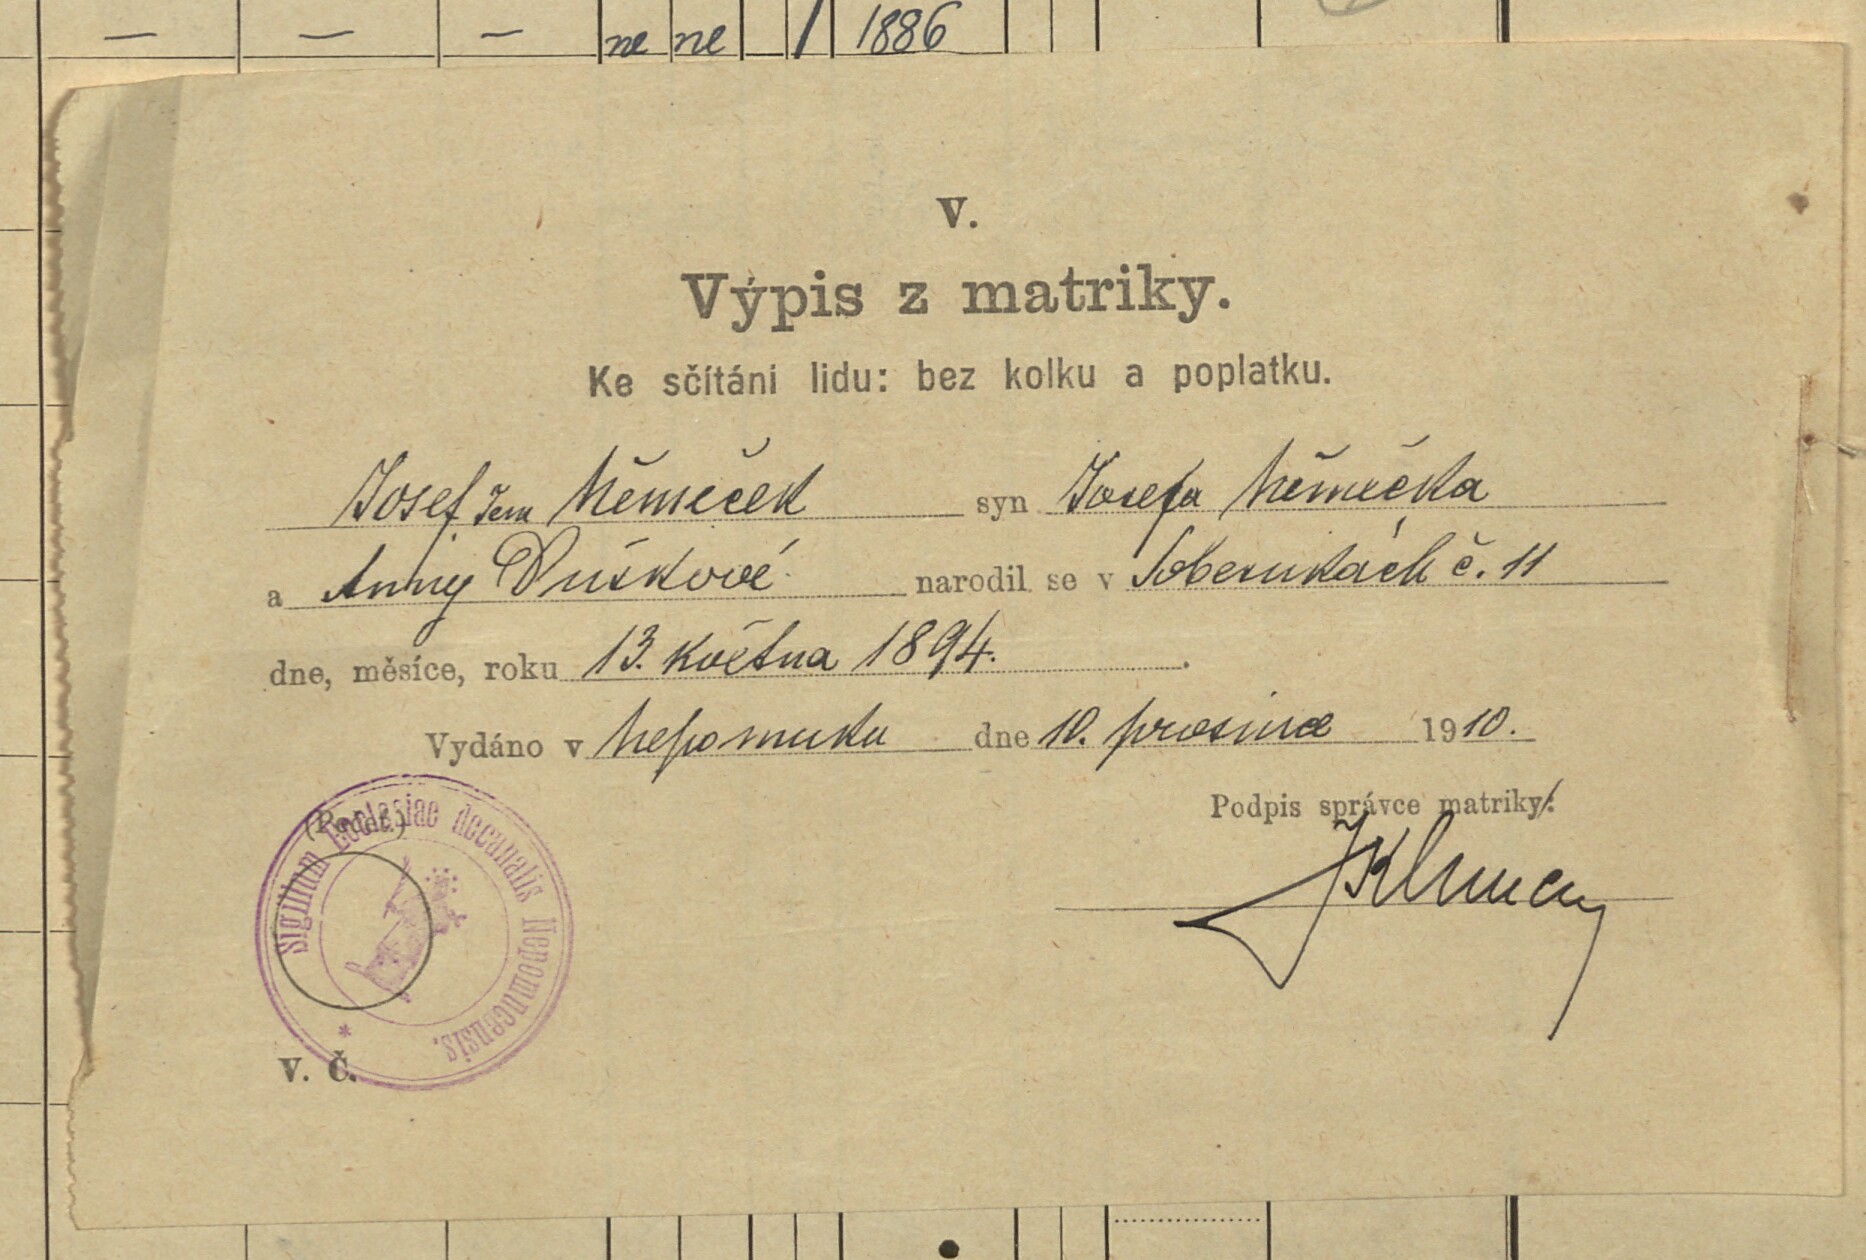 — — — ne ne / 1886
V.
Výpis z matriky.
Ke sčítání lidu: bez kolku a poplatku.
Josef Jan Němeček syn Josefa Němečka
a Anny Duškové narodil se v Soběsukách č. 11
dne, měsíce, roku 13. května 1894.
Vydáno v Nepomuku dne 10. prosince 1910.
Podpis správce matriky:
(Pečeť)
Sigillum Ecclesiae decanalis Nepomucensis. *
V. Č.